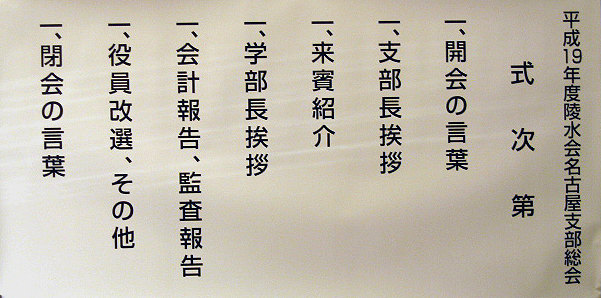 平成19年度陵水会名古屋支部総会
式次第
一、開会の言葉
一、支部長挨拶
一、来賓紹介
一、学部長挨拶
一、会計報告、監査報告
一、役員改選、その他
一、閉会の言葉